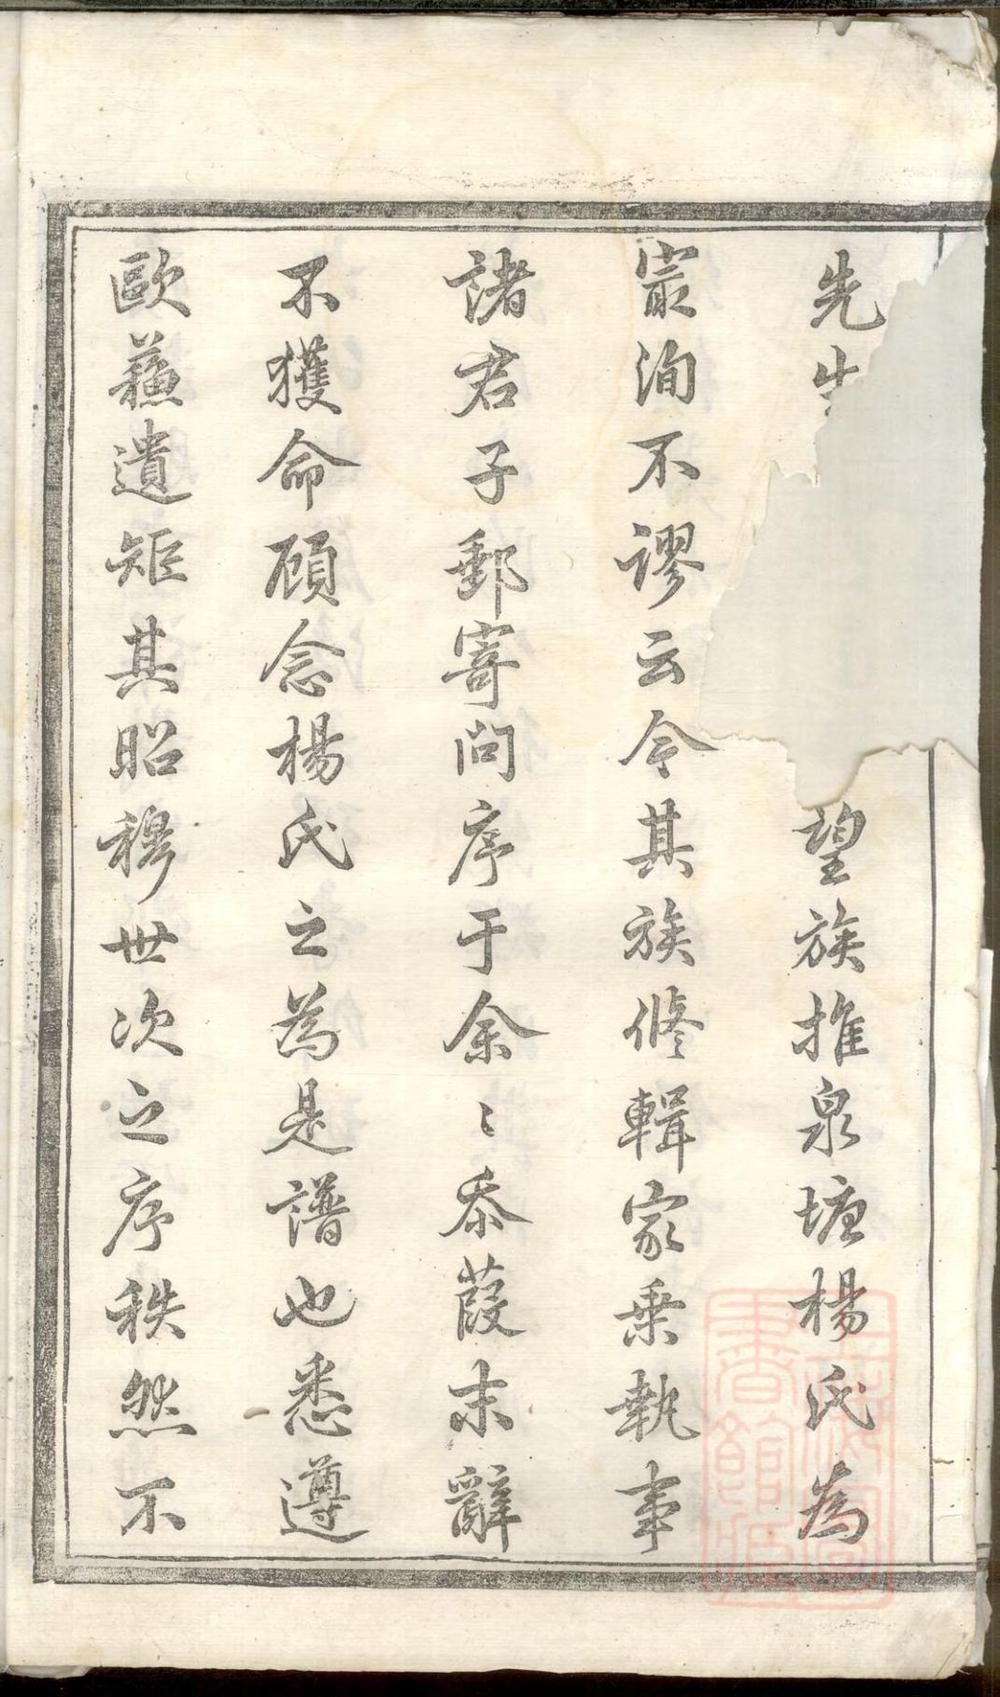 先生望族推泉塘楊氏為
冣洵不謬云今其族修輯家乗執事
諸君子郵寄問序于余〻忝葭末辭
不獲命顧念楊氏之為是譜也悉遵
歐蘓遺矩其昭穆世次之序秩然不